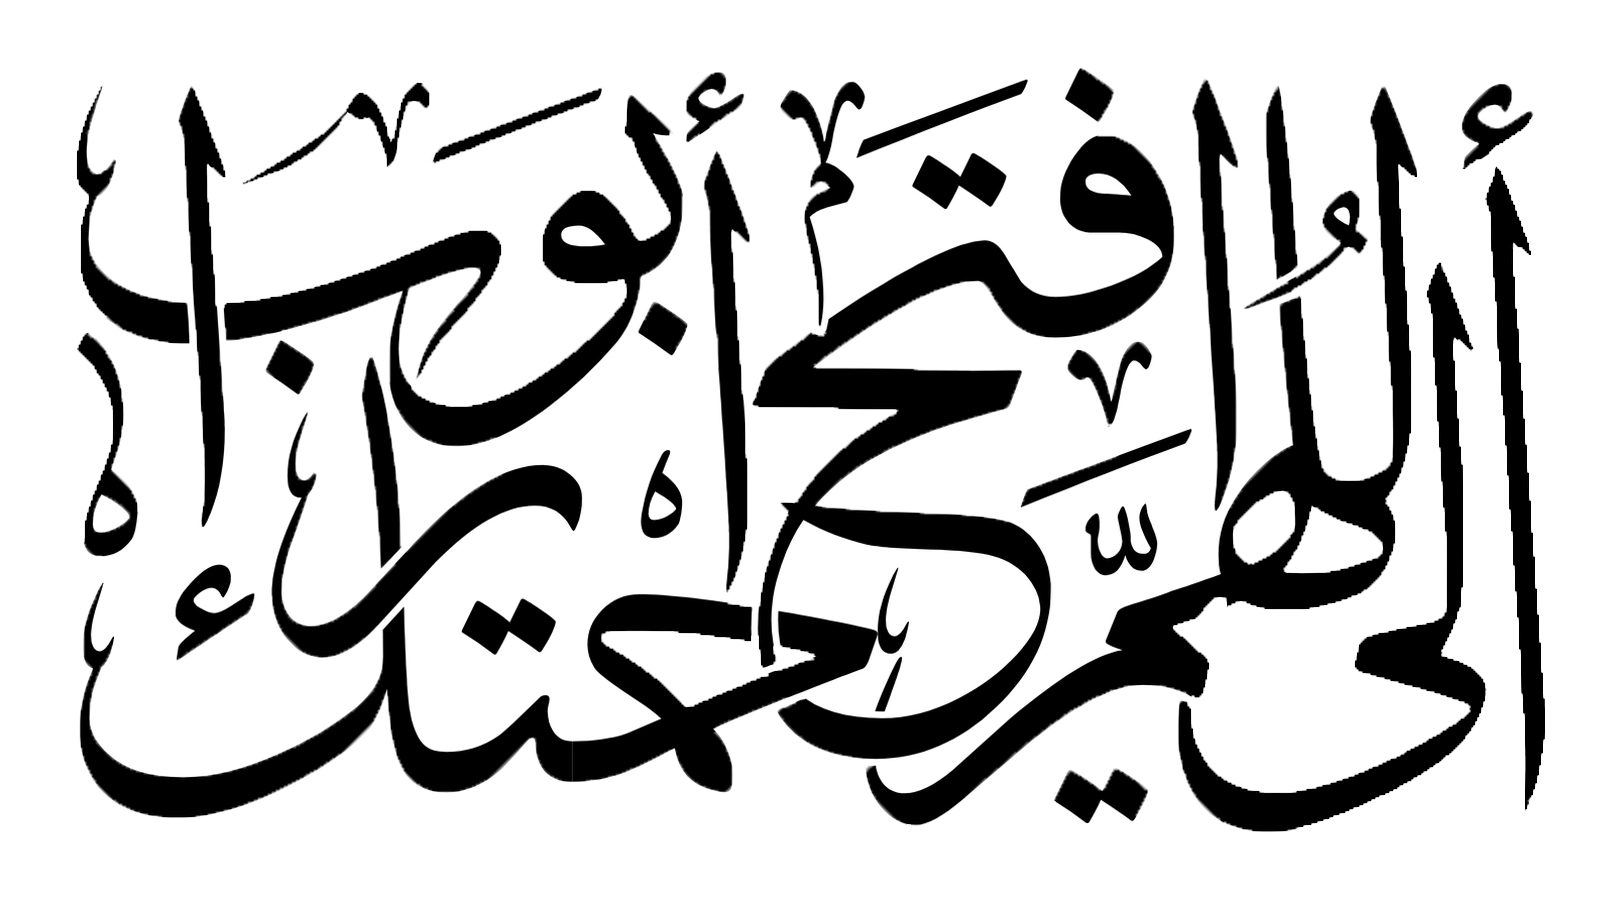 أللهم افتح لي أبواب رحمتك